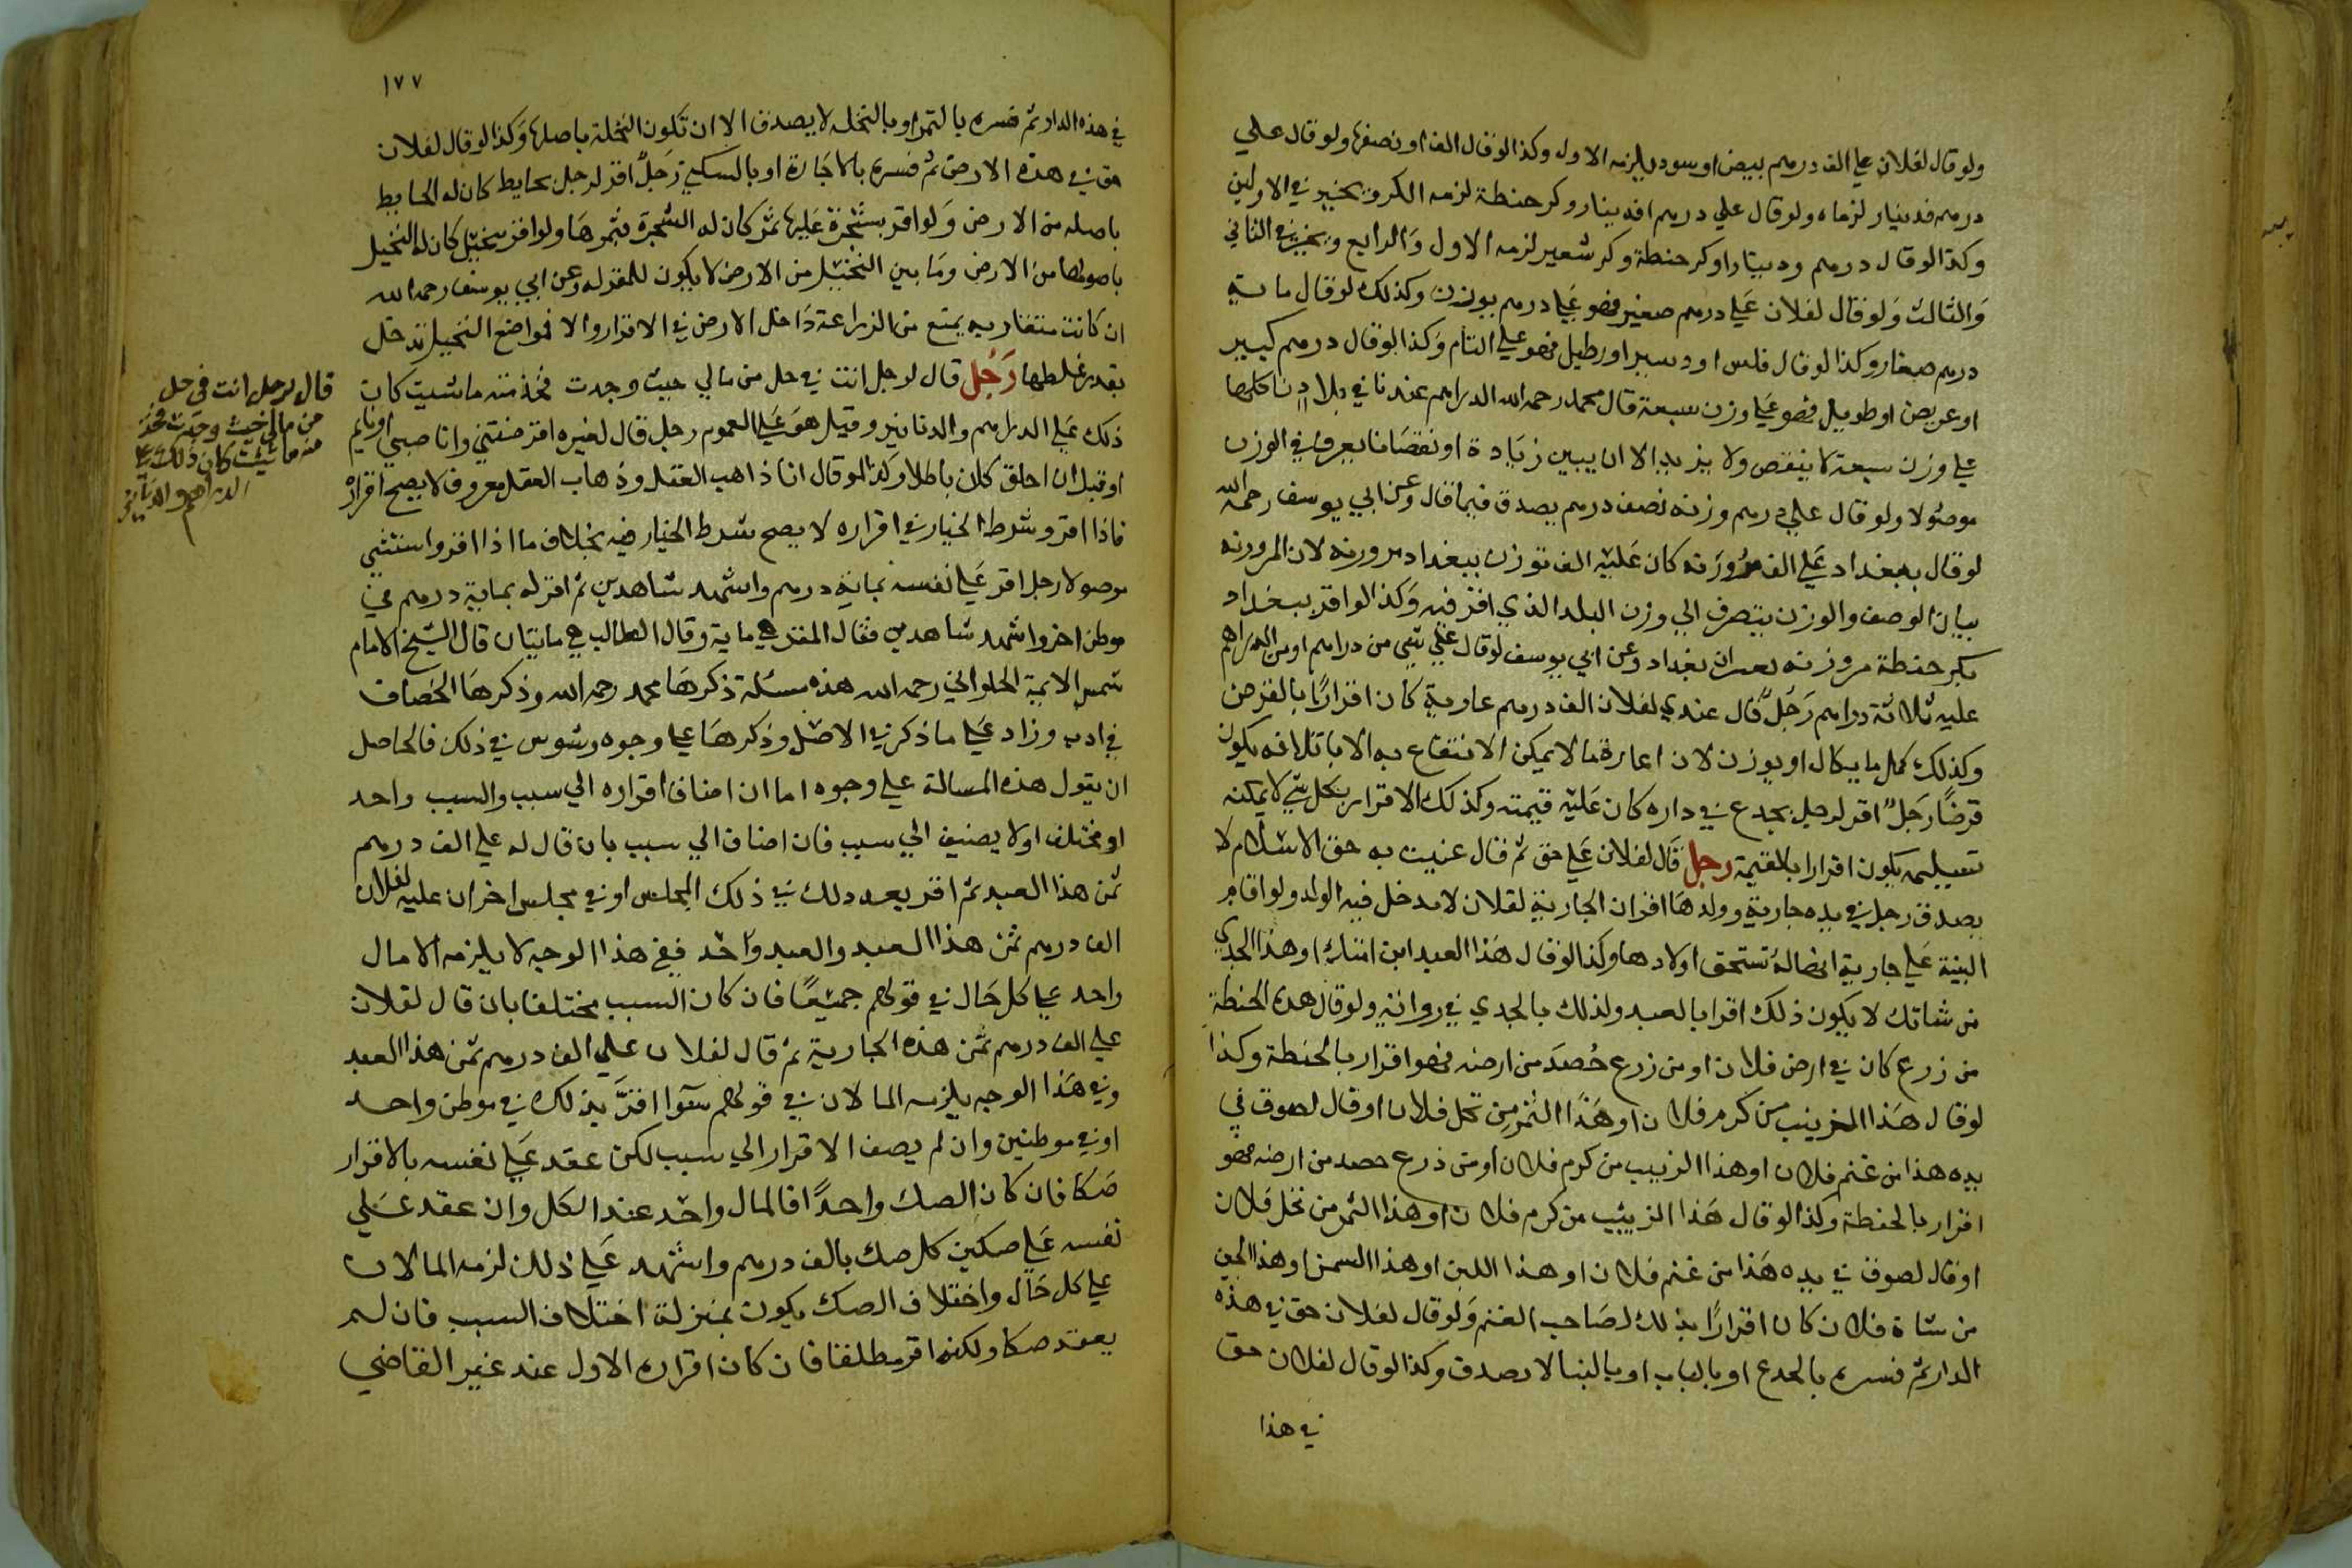 ولو قال لفلان علي الف درهم بيض او سود يلزمه الاول وكذا لو قال الف او نصفها ولو قال علي
درهم فدينار لزماه ولو قال علي درهم افدينار وكر حنطة لزمه الكر ويخير في الاولين
وكذا لو قال درهم ودينار او كر حنطة وكر شعير لزمه الاول والرابع ويخير في الثاني
والثالث ولو قال لفلان علي درهم صغير فهو علي درهم بوزن وكذلك لو قال ماية
درهم صغار وكذا لو قال فلس او دسير او رطيل فهو علي التام وكذا لو قال درهم كبير
او عريض او طويل فهو علي وزن سبعة قال محمد رحمه الله الدراهم عندنا في بلادنا كلها
علي وزن سبعة لا ينقص ولا يزيد الا ان يبين زيادة او نقصانا يعرف في الوزن
موصولا ولو قال علي درهم وزنه نصف درهم يصدق فيما قال وعن ابي يوسف رحمه الله
لو قال ببغداد علي الف مروزنه كان عليه الف توزن ببغداد مروزنه لان المروزنه
بيان الوصف والوزن يتصرف الي وزن البلد الذي اقر فيه وكذا لو اقر ببغداد
بكر حنطة مروزنه بغداد وعن ابي يوسف لو قال علي شي من دراهم او من الدراهم
عليه ثلاثة دراهم رجل قال عندي لفلان الف درهم عارية كان اقرارا بالقرض
وكذلك كل ما يكال او يوزن لان اعارة ما لا يمكن الانتفاع به الا باتلافه يكون
قرضا رجل اقر لرجل بجدع في داره كان عليه قيمته وكذلك الاقرار بكل شي لا يمكنه
تسليمه يكون اقرارا بالقيمة رجل قال لفلان علي حق ثم قال عنيت به حق الاسلام لا
يصدق رجل في يده جارية وولدها اقر ان الجارية لفلان لا يدخل فيه الولد ولو اقام
البينة علي جارية انها له تستحق اولادها وكذا لو قال هذا العبد ابن امتك او هذا الجدي
من شاتك لا يكون ذلك اقرا بالعبد ولذلك بالجدي في رواية ولو قال هذه الحنطة
من زرع كان في ارض فلان او من زرع حصد من ارضه فهو اقرار بالحنطة وكذا
لو قال هذا الزبيب من كرم فلان او هذا التمر من نخل فلان او قال لصوف في
يده هذا من غنم فلان او هذا الزبيب من كرم فلان او من زرع حصد من ارضه فهو
اقرار بالحنطة وكذا لو قال هذا الزبيب من كرم فلان او هذا التمر من نخل فلان
او قال لصوف في يده هذا من غنم فلان او هذا اللبن او هذا السمن او هذا الجبن
من شاة فلان كان اقرارا بذلك لصاحب الغنم ولو قال لفلان حق في هذه
الدار ثم فسره بالجدع او بالباب او بالبنا لا يصدق وكذا لو قال لفلان حق
في هذا
١٧٧
في هذه الدار ثم فسره بالتمر او بالنخل لا يصدق الا ان تكون النخلة باصلها وكذا لو قال لفلان
حق في هذه الارض ثم فسره بالاجارة او بالسكني رجل اقر لرجل بحايط كان له الحايط
باصله من الارض ولو اقر بشجرة عليها ثمر كان له الشجرة بثمرها ولو اقر بنخيل كان له النخيل
باصولها من الارض وما بين النخيل من الارض لا يكون للمقر له وعن ابي يوسف رحمه الله
ان كانت متقاربه يمنع من الزراعة داخل الارض في الاقرار والا فمواضع النخيل تدخل
بقدر غلظها رجل قال لرجل انت في حل من مالي حيث وجدت فخذ منه ما شيت كان
ذلك علي الدراهم والدنانير وقيل هو علي العموم رجل قال لغيره اقرضتني وانا صبي او نايم
او قبل ان اخلق كان باطلا وكذا لو قال انا ذاهب العقل وذهاب العقل معروف لا يصح اقراره
فاذا اقر وشرط الخيار في اقراره لا يصح شرط الخيار فيه بخلاف ما اذا اقر واستثني
موصولا رجل اقر علي نفسه بماية درهم واشهد شاهدين ثم اقر له بماية درهم في
موطن اخر واشهد شاهدين فقال المقر هي ماية وقال الطالب هي مايتان قال الشيخ الامام
شمس الايمة الحلواني رحمه الله هذه مسئلة ذكرها محمد رحمه الله وذكرها الخصاف
في ادبه وزاد علي ما ذكر في الاصل وذكرها علي وجوه وشوس في ذلك فالحاصل
ان يقول هذه المسالة علي وجوه اما ان اضاف اقراره الي سبب والسبب واحد
او مختلف او لا يضيف الي سبب فان اضاف الي سبب بان قال له علي الف درهم
ثمن هذا العبد ثم اقر بعد ذلك في ذلك المجلس او في مجلس اخر ان عليه لفلان
الف درهم ثمن هذا العبد والعبد واحد ففي هذا الوجه لا يلزمه الا مال
واحد علي كل حال في قولهم جميعا فان كان السبب مختلفا بان قال لفلان
علي الف درهم ثمن هذه الجارية ثم قال لفلان علي الف درهم ثمن هذا العبد
وفي هذا الوجه يلزمه المالان في قولهم سوا اقر بذلك في موطن واحد
او في موطنين وان لم يصف الاقرار الي سبب لكن عقد علي نفسه بالاقرار
صكا فان كان الصك واحدا فالمال واحد عند الكل وان عقد علي
نفسه علي صكين كل صك بالف درهم واشهد علي ذلك لزمه المالان
علي كل حال واختلاف الصك يكون بمنزلة اختلاف السبب فان لم
يعقد صكا ولكنه اقر مطلقا فان كان اقراره الاول عند غير القاضي
قال لرجل انت في حل
من مالي حيث وجدت فخذ
منه ما شيت كان ذلك علي
الدراهم والدنانير